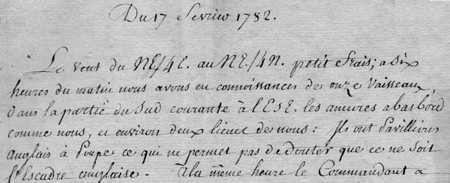 Du 17 Fevrier 1782.
Le vent du NE/4E. au NE/4N. petit frais; a six
heures du matin nous avons eu connoissances des onze Vaisseaux,
dans la partie du Sud courante à l'ESE. les amures a basbord
comme nous, et environ deux lieues de nous: Ils ont Pavillion
anglais à Poupe ce qui ne permet pas de douter que ce ne soit
l'Escadre anglaise. A la même heure le Commandant a